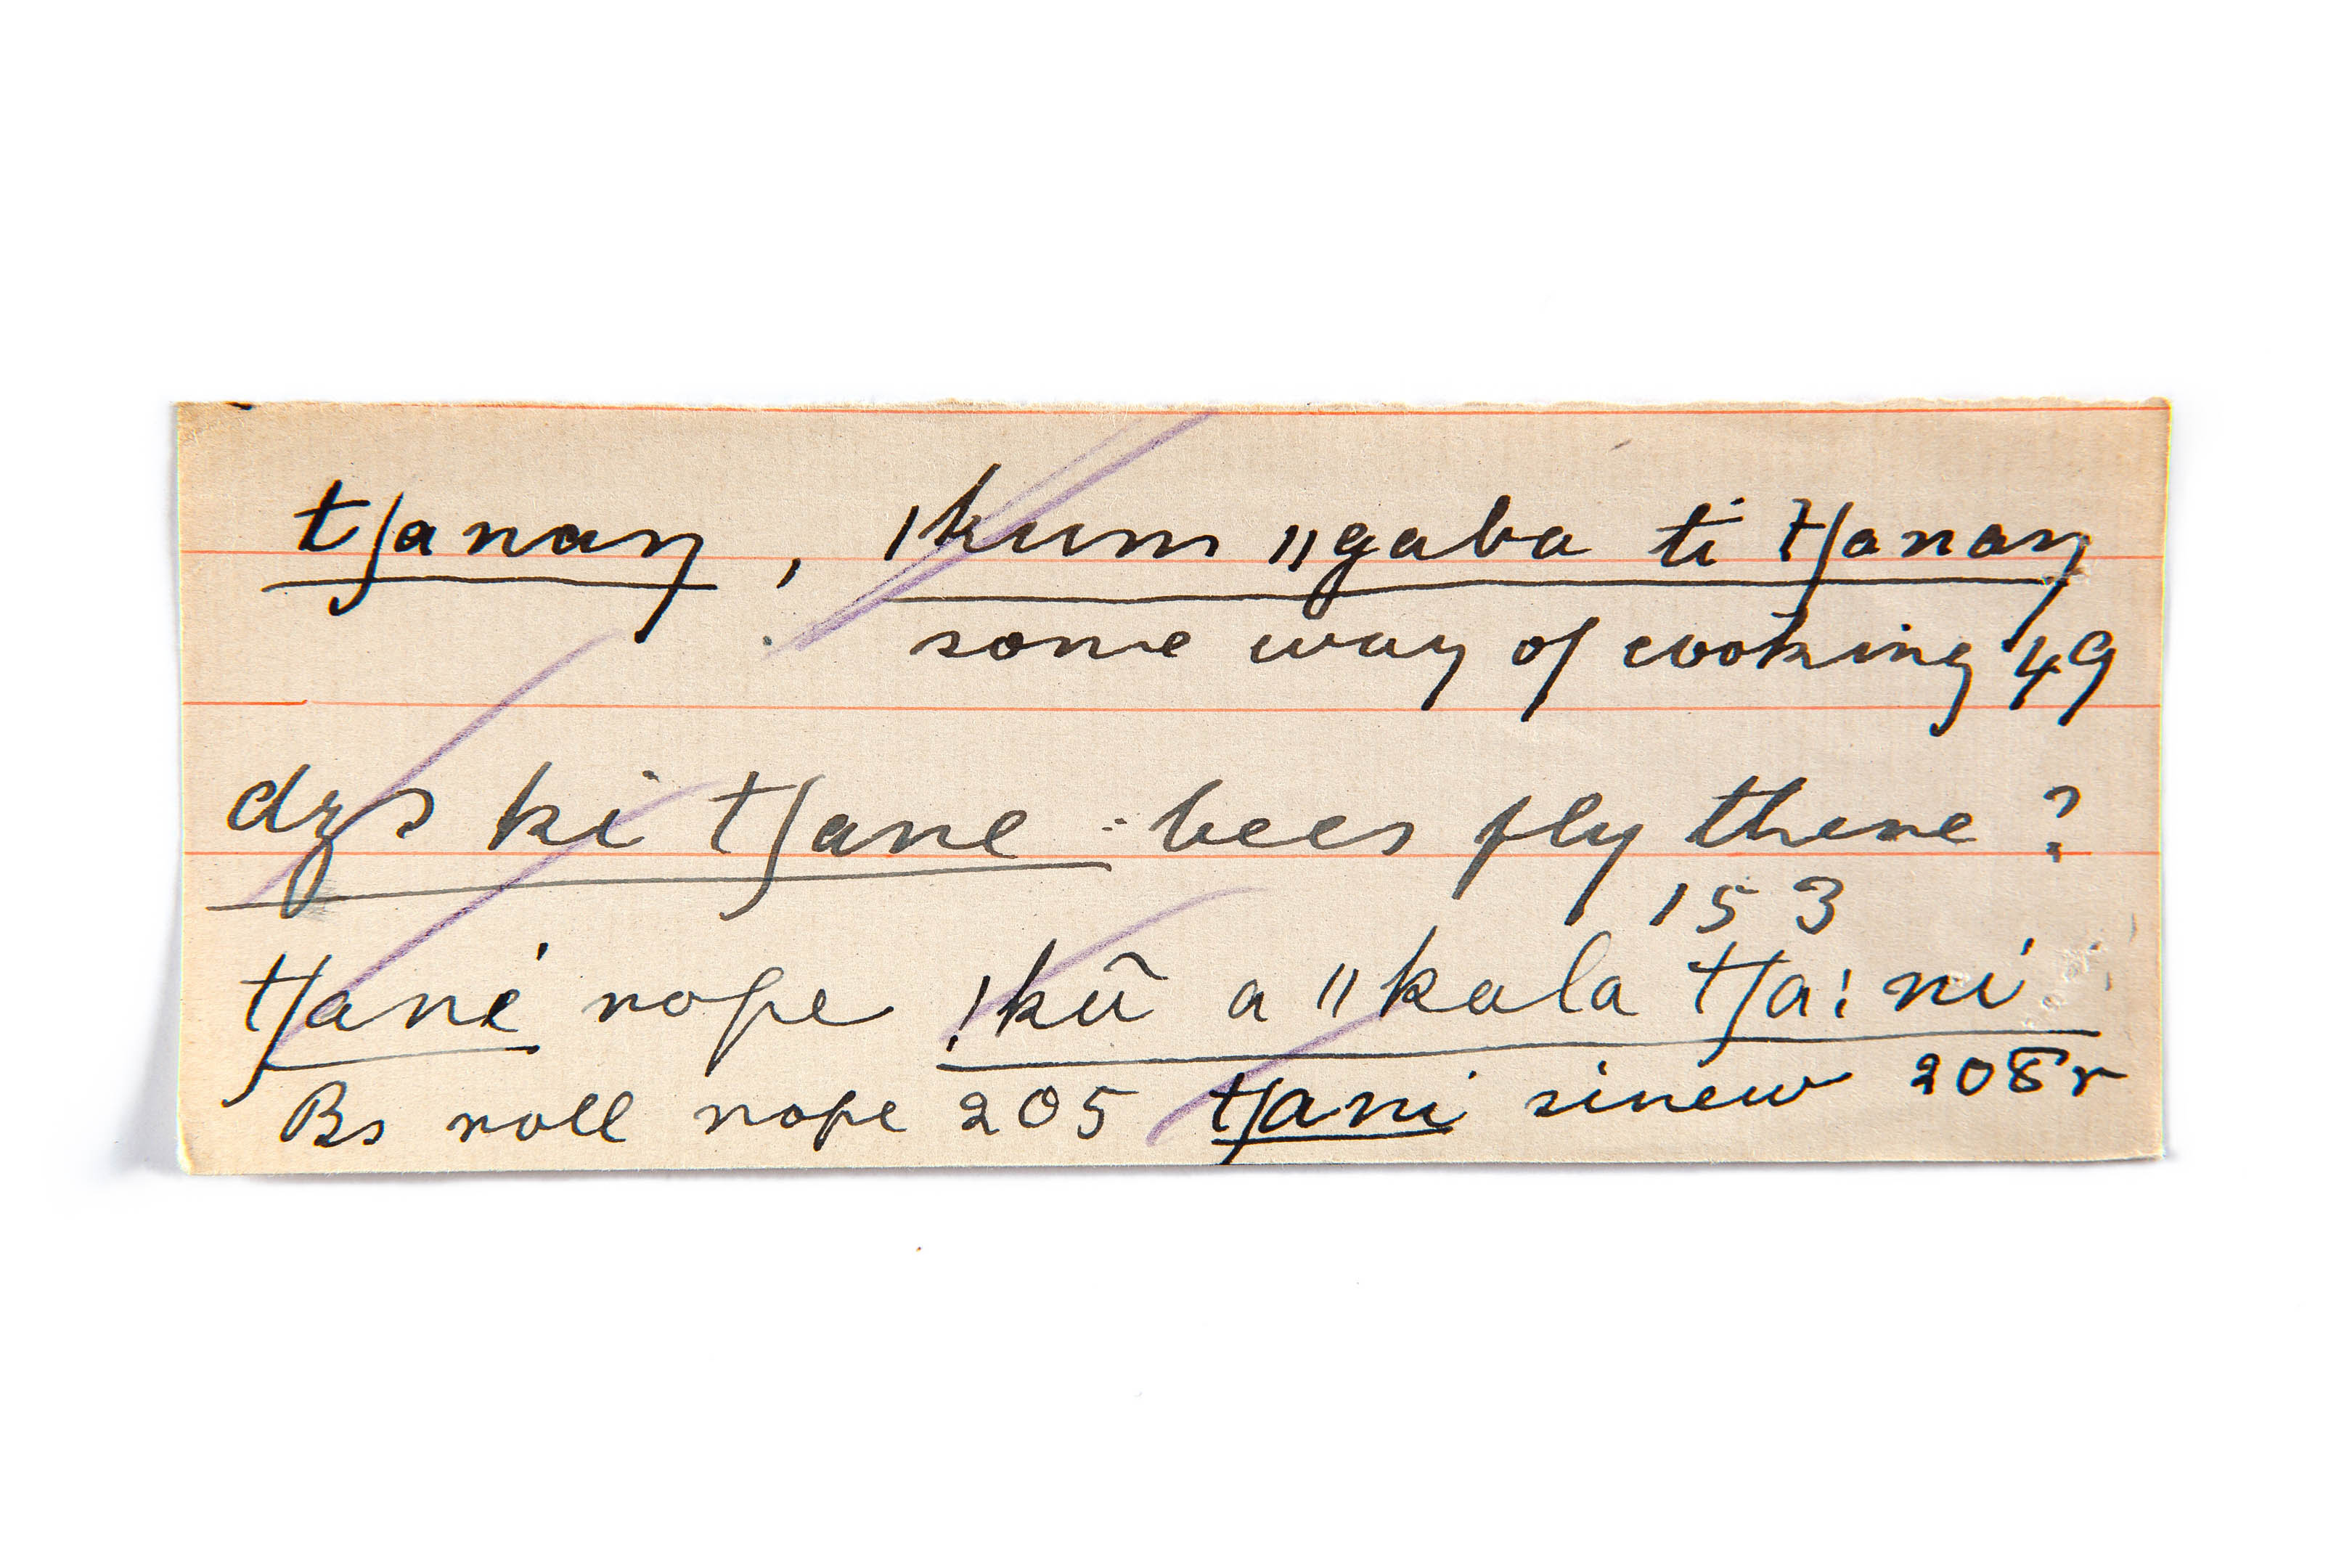 tʃanaŋ, ǀkum ǁgaba ti tʃanaŋ
some way of cooking 49
dzɔ ki tʃane : bees fly there ?
153
tʃane' rope ǃkū a ǁkala tʃa:ni'
Bs roll rope 205 tʃani sinew 208r